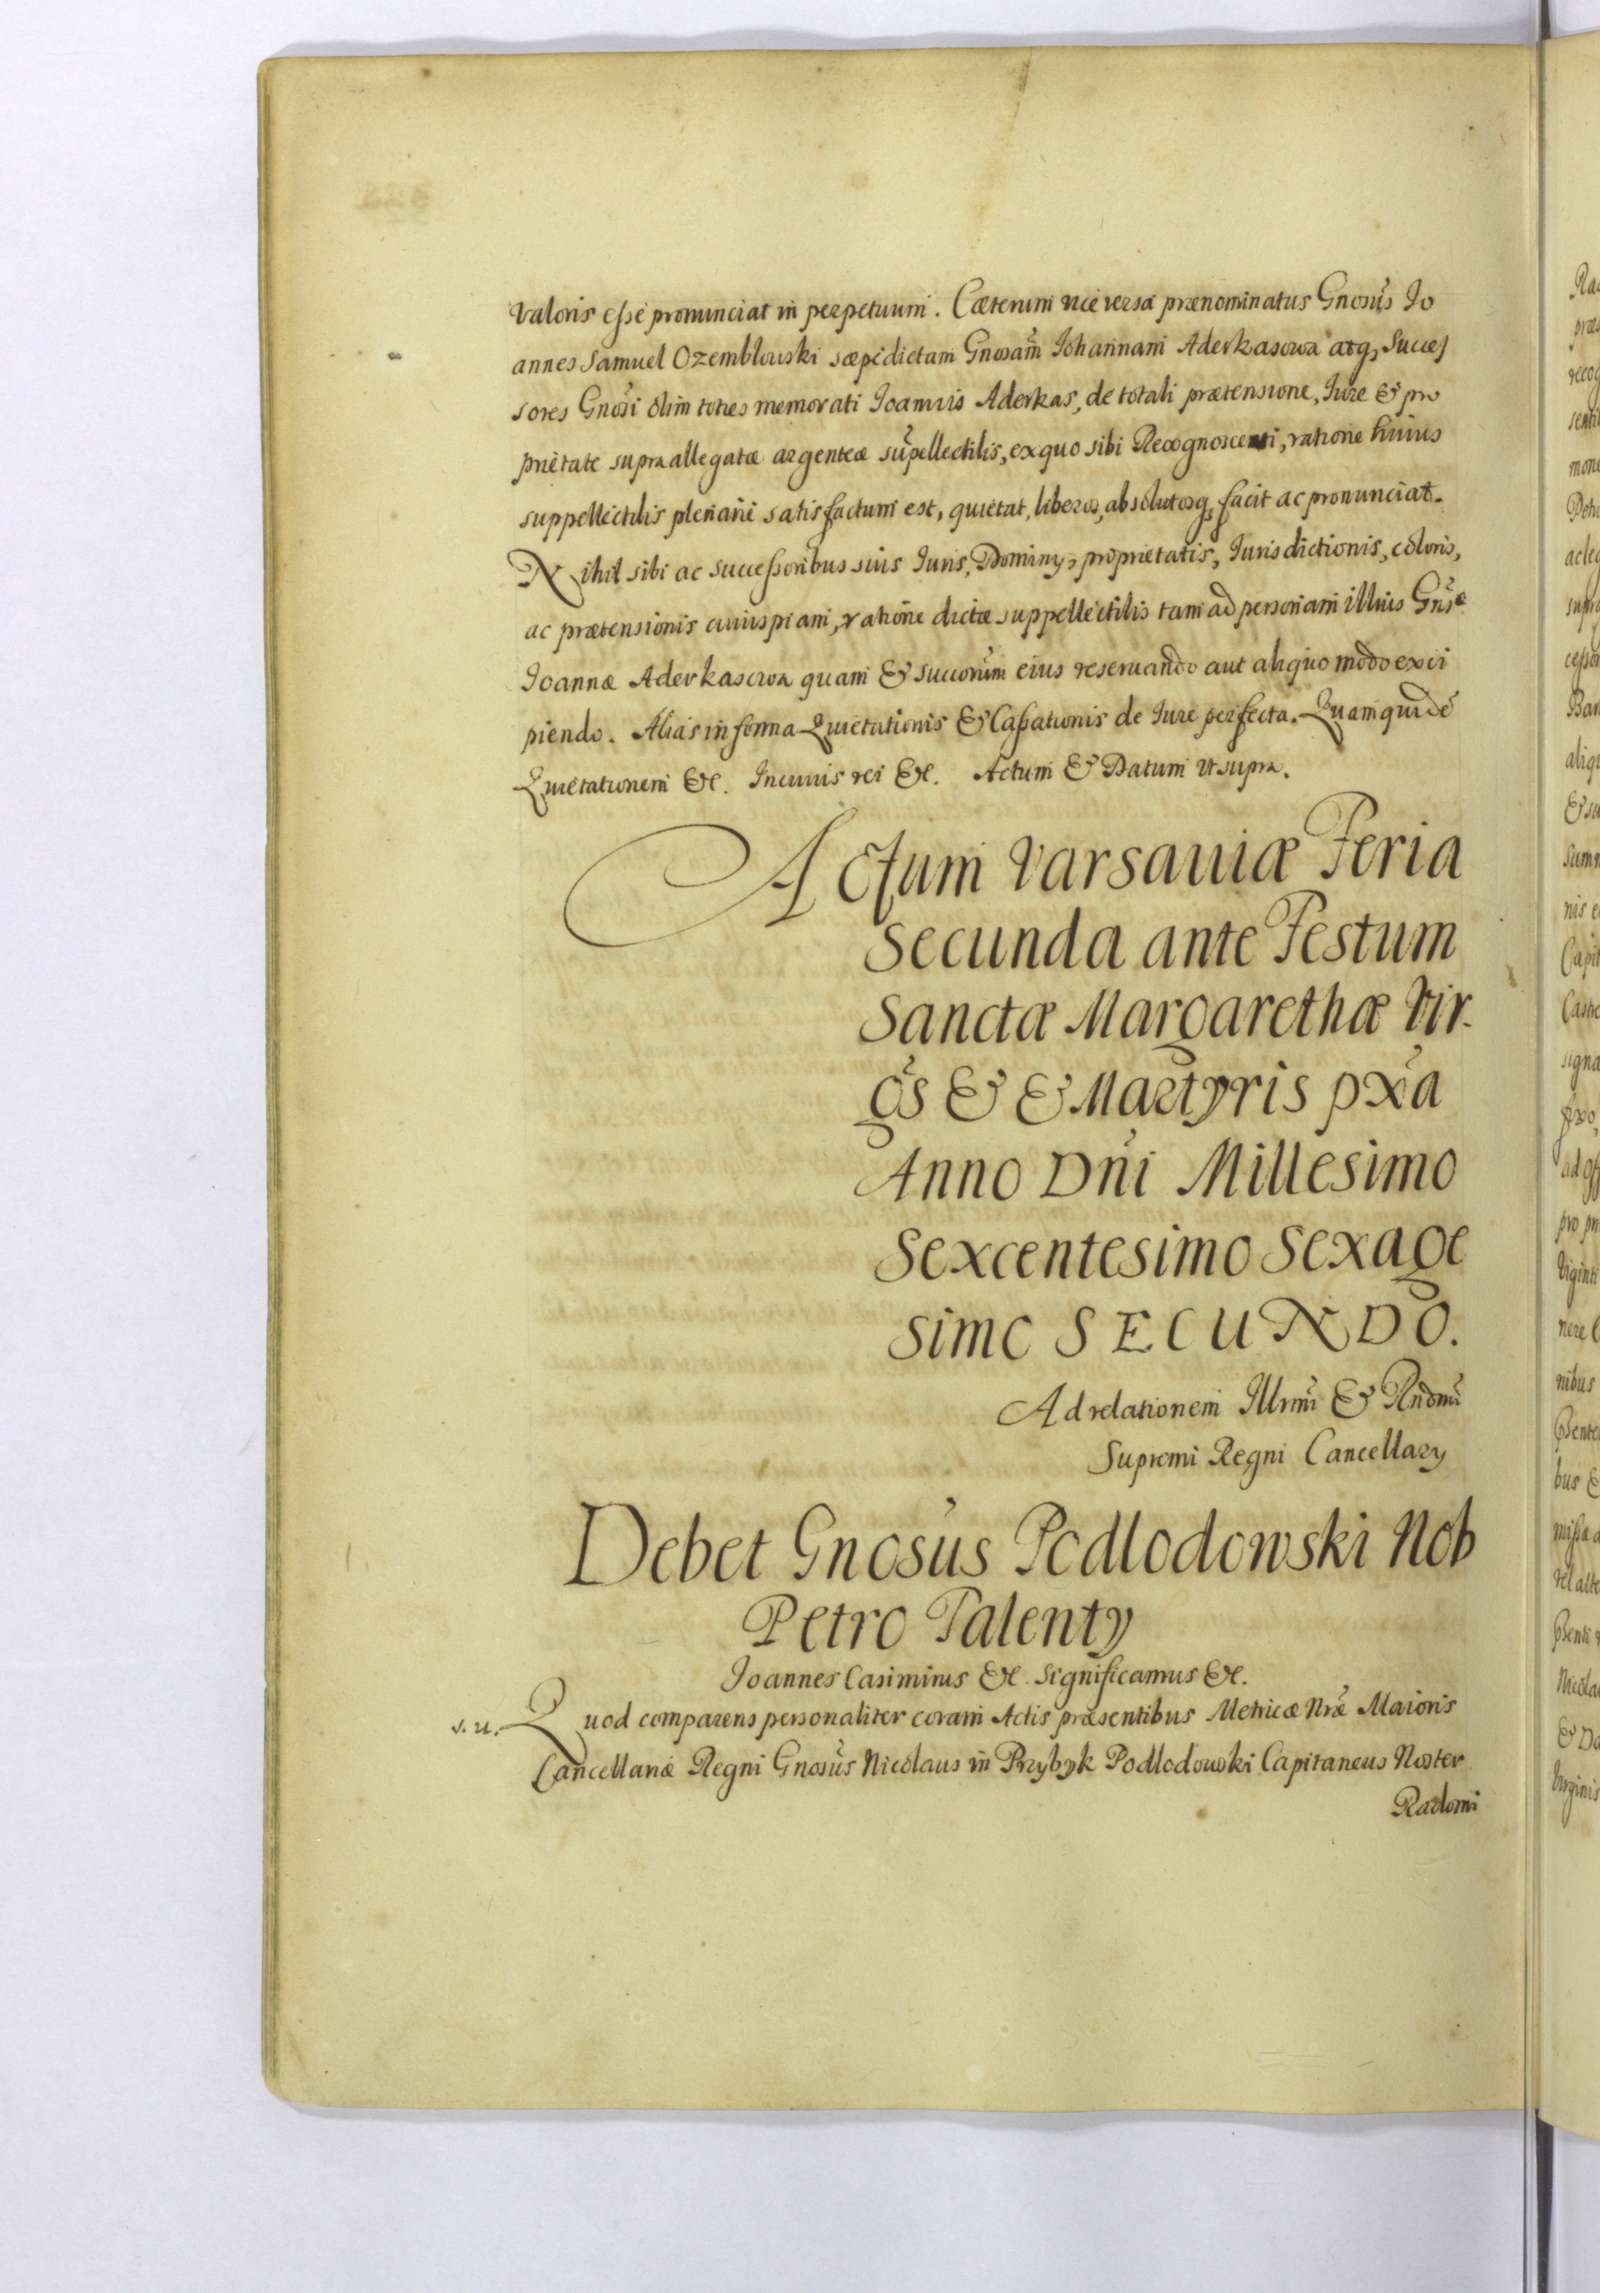 valoris esse pronunciat in perpetuum. Cæterum vice versa prænominatus Gnosus Jo
annes Samuel Ozemblowski sæpedictam Gnosam Johannam Aderkasowa atq, Succes
sores Gnosi olim toties memorati Joannis Aderkas, de totali prætensione, Jure & pro
prietate supra allegatæ argenteæ supellectilis, ex quo sibi Recognoscenti, ratione huius
suppellectilis plenarie satisfactum est, quietat, liberos, absolutosq, facit ac pronunciat.
Nihil sibi ac successoribus suis Juris, Dominy, proprietatis, Jurisdictionis, coloris,
ac prætensionis cuiuspiam, ratione dictæ suppellectilis tam ad personam illius Gnsæ
Joannæ Aderkasowa quam & succorum eius reservando aut aliquo modo exci
piendo. Alias in forma Quietationis & Cassationis de Jure perfecta. Quam quidē
Quietationem &c. In cuius rei &c. Actum & Datum ut supra.
Actum Varsaviæ Feria
Secunda ante Festum
Sanctæ Margarethæ Vir-
gs & & Martyris pxa
Anno Dni Millesimo
Sexcentesimo Sexage
simo SECUNDO.
Ad relationem Illrmi & Rndmi
Supremi Regni Cancellary
Debet Gnosus Podlodowski Nob
Petro Talenty
Joannes Casimirus &c. Significamus &c.
s. u. Quod comparens personaliter coram Actis præsentibus Metricæ Nræ Maioris
Cancellariæ Regni Gnosus Nicolaus in Przybyk Podlodowski Capitaneus Noster
Radomi